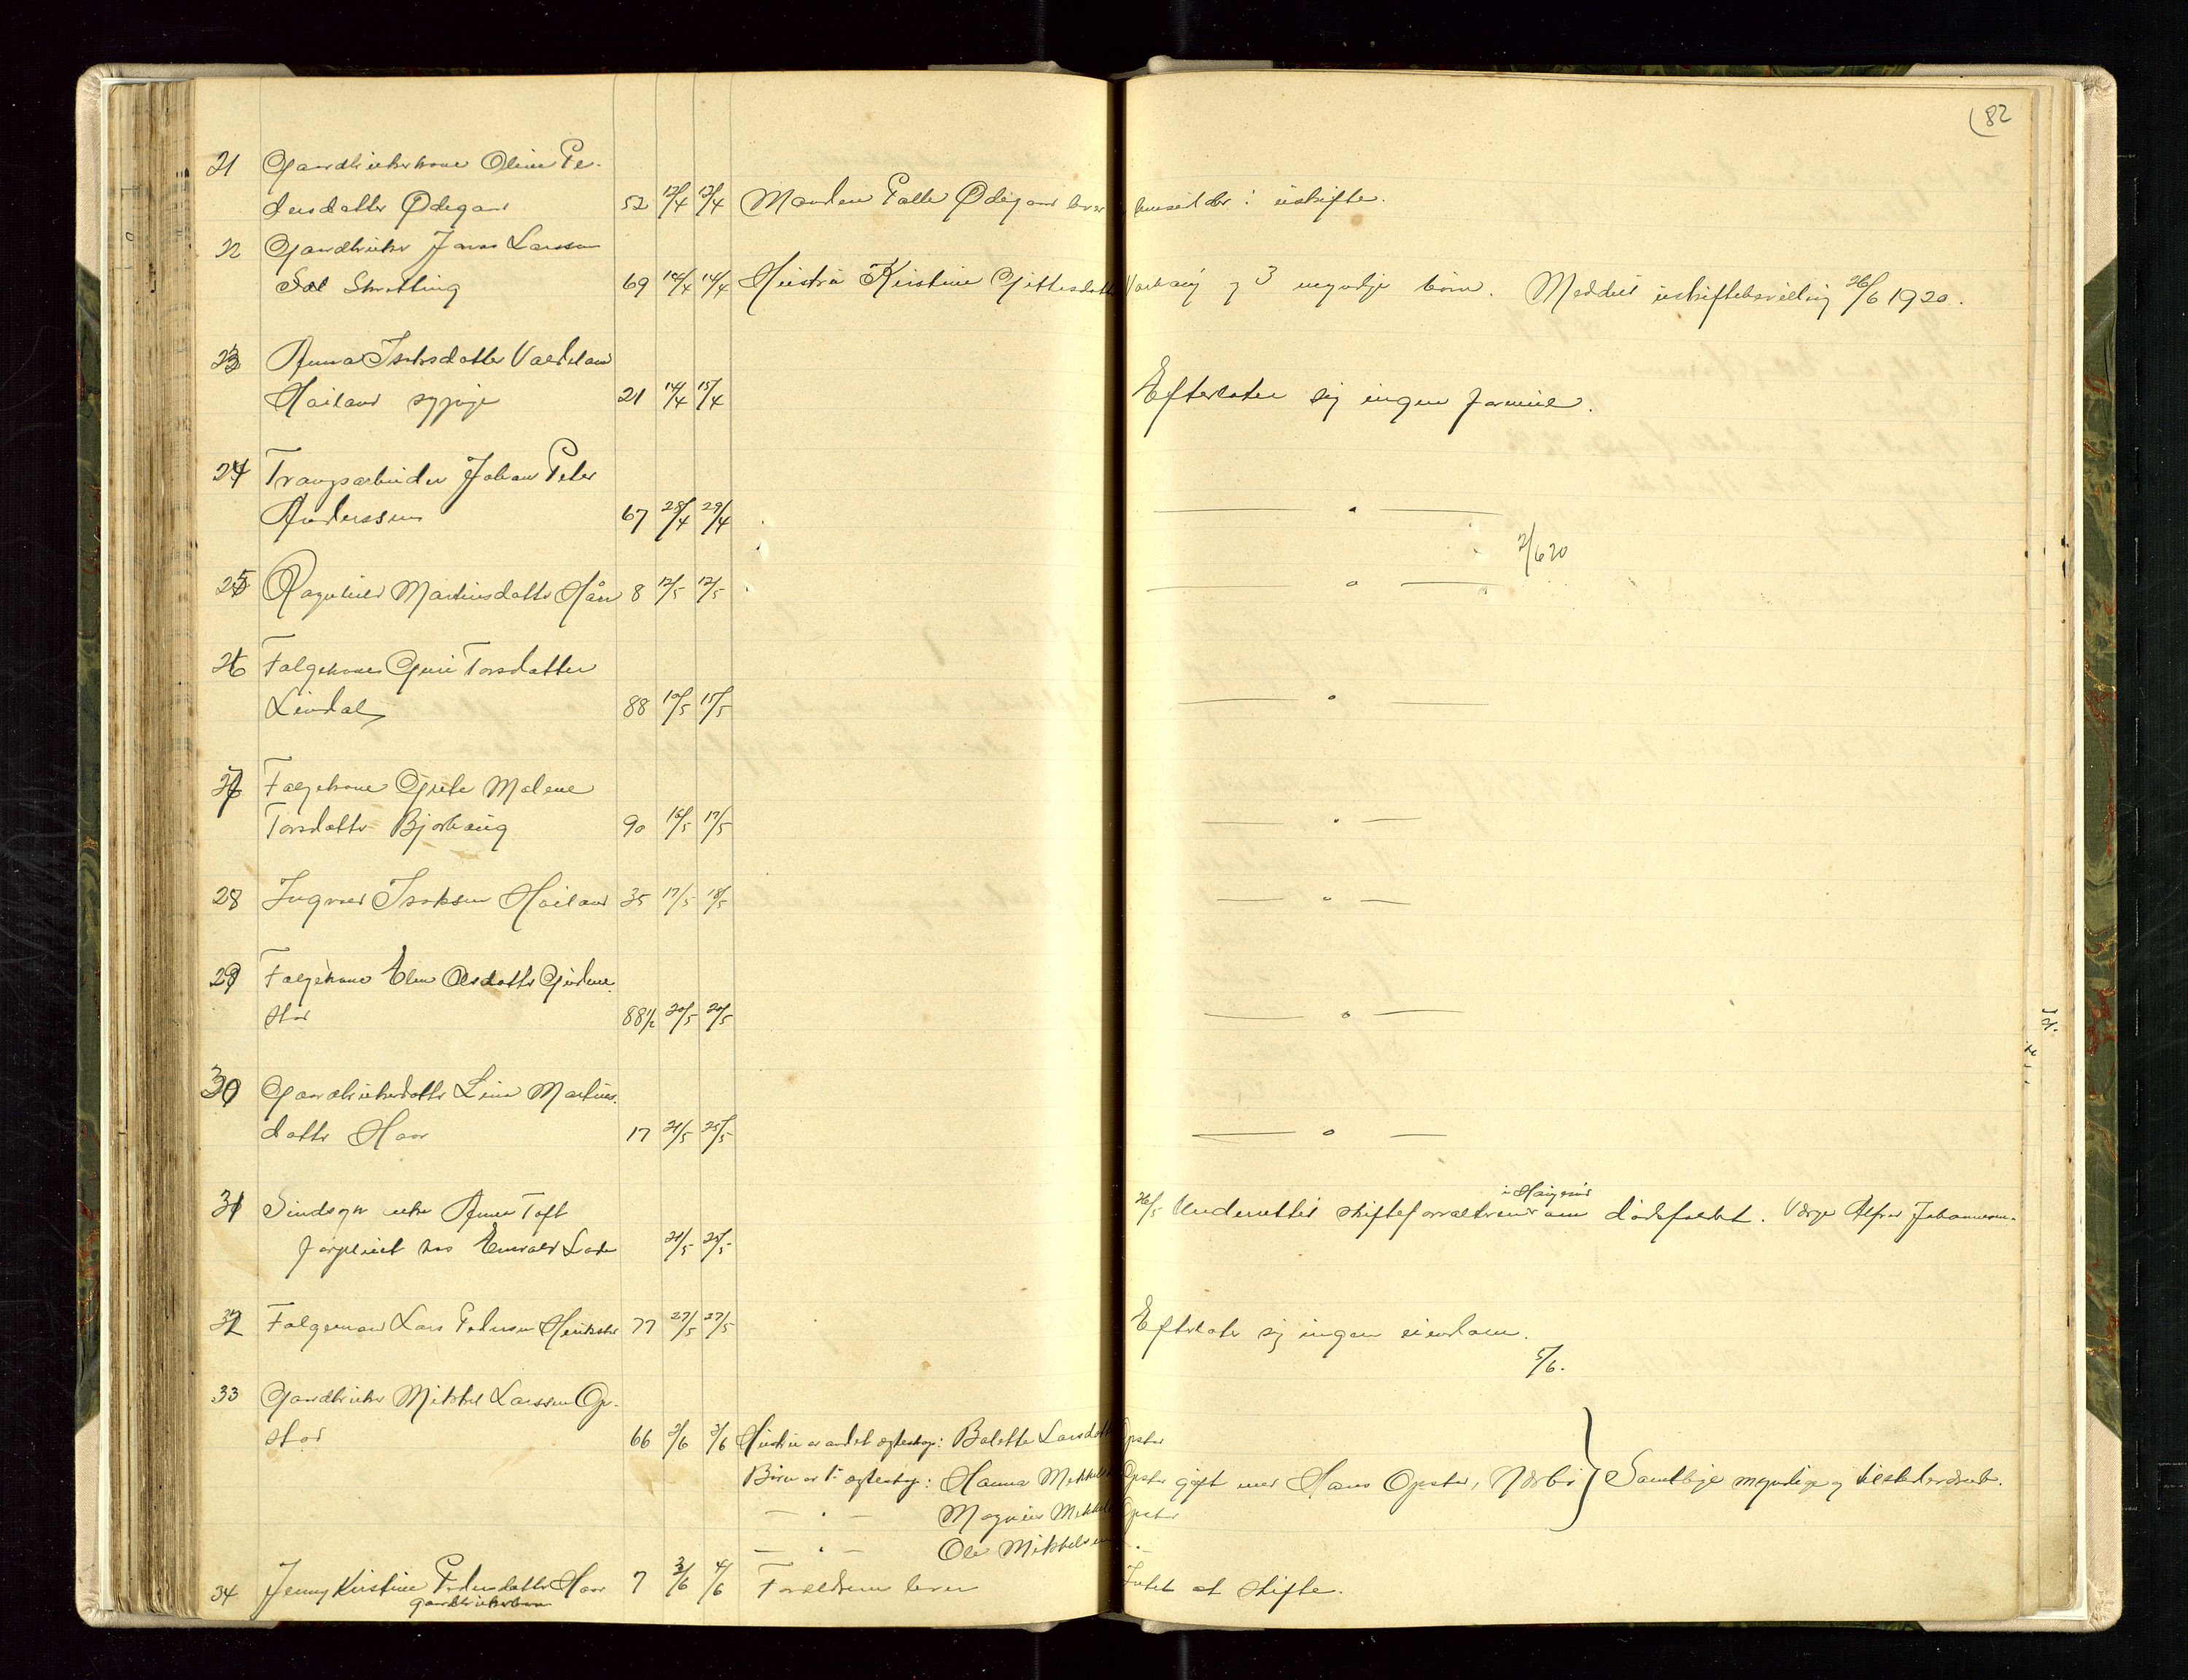 82
21 Gaardbrukerkone Oline Pe-
dersdatter Ødegaar 52 12/4 12/4 Manden Palle Ødegaar lever, hensidder i uskifte.
22 Gaardbruker Jonas Larssen
Sæl Skretting 69 14/4 14/4 Hustru Kirstine Gittesdatter Varhaug og 3 myndige børn. Meddelt uskiftebevilling 26/6 1920.
23 Anna Isaksdatter Valdeland
Høiland sypige 21 14/4 15/4 Efterlater sig ingen formue.
24 Trangsarbeider Johan Peter
Anderssen 67 28/4 29/4 — " —
2/6 20
25 Ragnhild Martinsdatter Hår 8 12/5 12/5 — " —
26 Følgekone Guri Torsdatter
Lindal 88 10/5 15/5 — " —
27 Følgekone Grete Malene
Torsdatter Bjorhaug 90 16/5 17/5 — " —
28 Ingvald Isaksen Høiland 35 17/5 18/5 — " —
29 Følgekone Elen Olsdatter Gudme-
stad 88½ 20/5 20/5 — " —
30 Gaardbrukerdatter Lina Martins-
datter Haar 17 21/5 25/5 — " —
31 Sindssyk enke Anna Toft
forpleiet hos Emvald Lode 21/5 25/5 26/5 Underrettet skifteforvalteren i Haugesund om dødsfaldet. Verge Alfred Johannessen.
32 Følgemand Lars Pedersen Herikstad 77 27/5 27/5 Efterlater sig ingen eiendom.
5/6.
33 Gaardbruker Mikkel Larssen Op-
stad 66 2/6 3/6 Hustru av andet egteskap: Bolette Larsdatter Opstad
Børn av 1ste egteskap: Hanna Mikkelsd. Opstad gift med Hans Opstad, Nærbø } Samtlige myndige og tilstedeværende.
— " — Magnus Mikkelsen Opstad
— " — Ole Mikkelsen — " —
34 Jenny Kirstine Pedersdatter Haar 7 3/6 4/6 Forældrene lever Intet at skifte.
gaardbrukerbarn